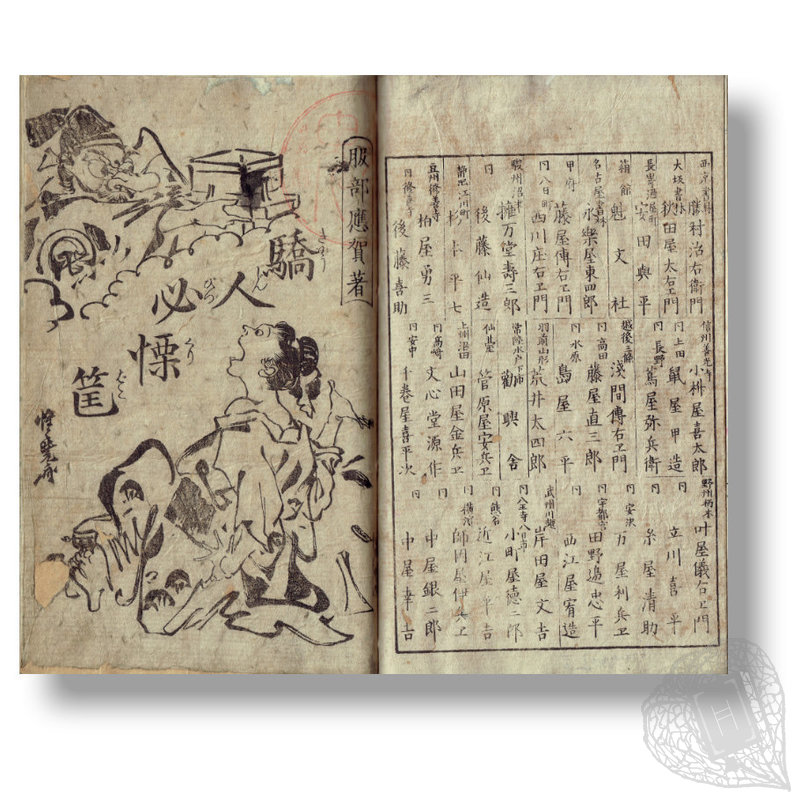 西京書林 勝村治右衛門
大坂書林 秋田屋太右エ門
安田興平
箱館 魁文社
名古屋書林 永樂屋東四郎
甲府 藤屋傳右エ門
円八日町 西川庄右エ門
駿州沼津 擁万堂壽三郎
円 後藤仙造
江川町 杉本平七
豆州修善寺 柏屋勇三
円修善寺 後藤喜助
信州善光寺 小桝屋喜太郎
円上田 鼠屋甲造
円長野 蔦屋弥兵衛
越後三條 漢間傳右エ門
円高田 藤屋直三郎
円水原 島屋六平
羽前山形 荒井太四郎
常陸水戸下市 勸興舎
仙臺 菅原屋安兵卫
上州沼田 山田屋金兵卫
円高崎 文心堂源作
円安中 千巻屋喜平次
野州栃木 叶屋儀右エ門
円 立川喜平
円 糸屋清助
円 万屋利兵卫
円宇都宮 田野邉忠平
円 西江屋宥造
武州川越 岸田屋文吉
円八王子八日市 小町屋徳二郎
円熊谷 近江屋平吉
師岡屋伊兵卫
円 中屋銀二郎
円 中屋幸吉
服部應賀著
驕人
必慄
筐
H